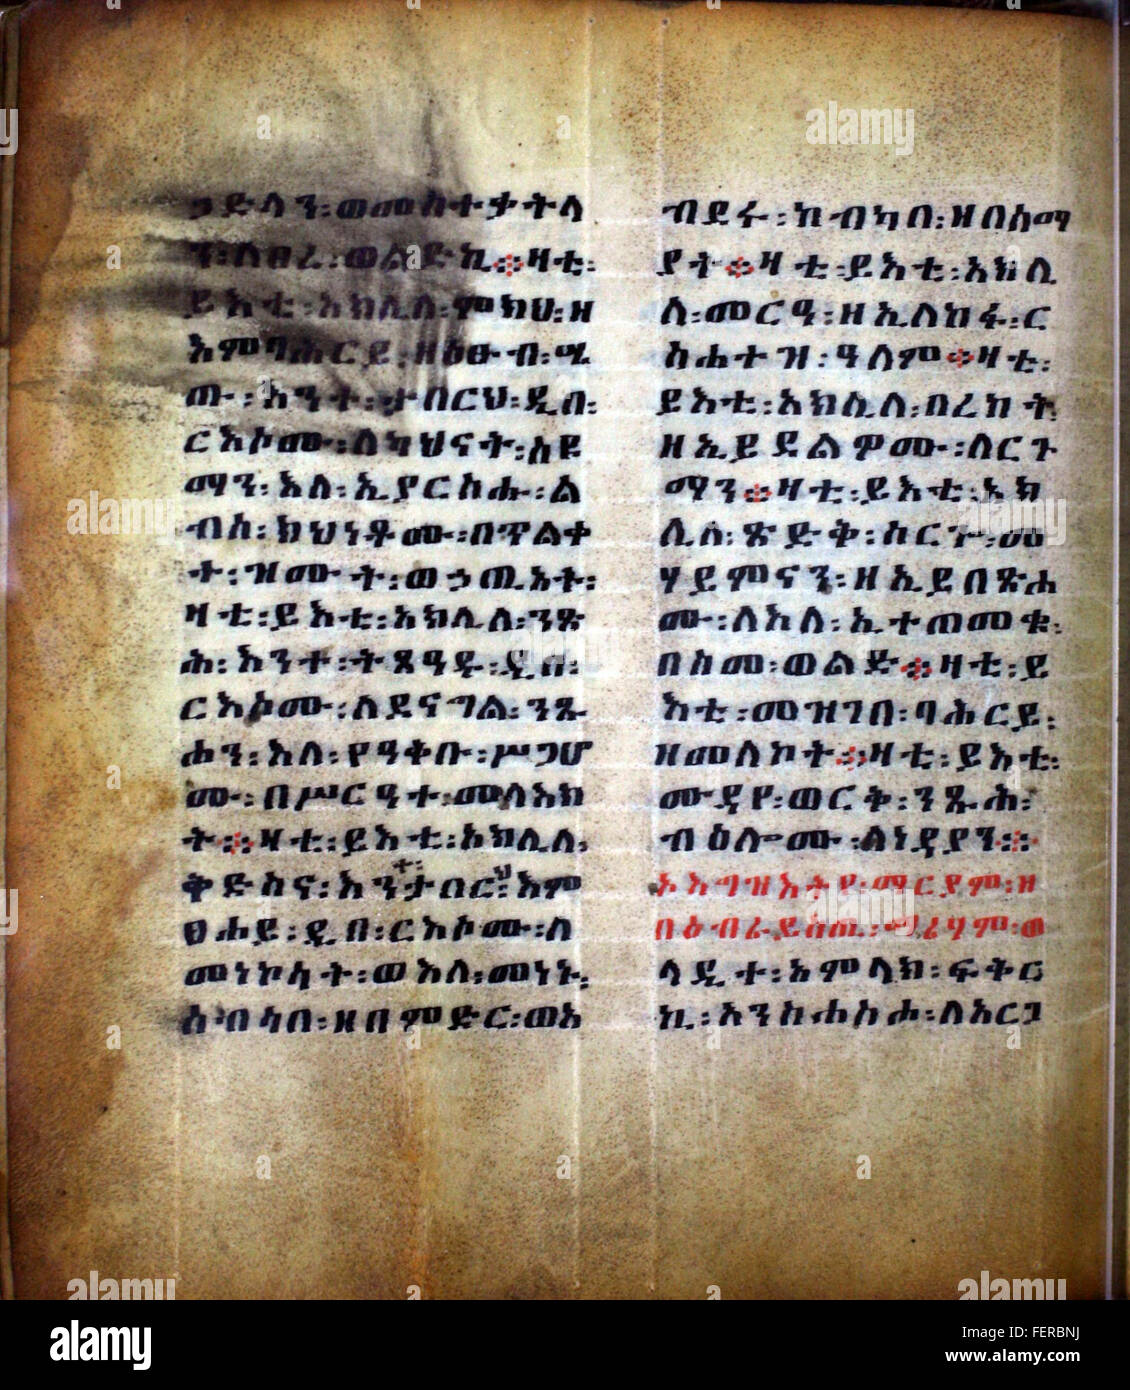 ድላን፡ወመስተቃትላ
ን፡ለፀረ፡ወልድኪ፨ዛቲ፡
ይእቲ፡አክሊለ፡ምክህ፡ዘ
እምባሕርይ፡ዘዕፁብ፡ሤ
ጡ፡እንተ፡ታበርህ፡ዲበ፡
ርእሶሙ፡ለካህናት፡ሰዩ
ማን፡እለ፡ኢያርስሑ፡ል
ብሰ፡ክህነቶሙ፡በጥልቀ
ተ፡ዝሙት፡ወኃጢአት፡
ዛቲ፡ይእቲ፡አክሊለ፡ንጽ
ሕ፡እንተ፡ትጼዓዱ፡ዲበ፡
ርእሶሙ፡ለደናግል፡ንጹ
ሐን፡እለ፡የዓቅቡ፡ሥጋሆ
ሙ፡በሥርዓተ፡መላእክ
ት፨ዛቲ፡ይእቲ፡አክሊለ፡
ቅድስና፡እንተ፡ታበርህ፡እም
ፀሐይ፡ዲበ፡ርእሶሙ፡ለ
መነኮሳት፡ወእለ፡መነኑ፡
ሰብካበ፡ዘበምድር፡ወአ
ብደሩ፡ከብካበ፡ዘበሰማ
ያት፨ዛቲ፡ይእቲ፡አክሊ
ለ፡መርዓ፡ዘኢለከፋ፡ር
ስሐተ፡ዝ፡ዓለም፨ዛቲ፡
ይእቲ፡አክሊለ፡በረከት፡
ዘኢይደልዎሙ፡ለርጉ
ማን፨ዛቲ፡ይእቲ፡አክ
ሊለ፡ጽድቅ፡ሰርጐ፡መ
ሃይምናን፡ዘኢይበጽሐ
ሙ፡ለእለ፡ኢተጠመቁ፡
በስመ፡ወልድ፨ዛቲ፡ይ
እቲ፡መዝገበ፡ባሕርይ፡
ዘመለኮት፨ዛቲ፡ይእቲ፡
ሙዳየ፡ወርቅ፡ንጹሕ፡
ብዕሎሙ፡ለነዳያን፨
ኦእግዝእትየ፡ማርያም፡ዘ
በዕብራይስጢ፡ማሪሃም፡ወ
ላዲተ፡አምላክ፡ፍቅር
ኪ፡አንሰሐስሐ፡ለአርጋ